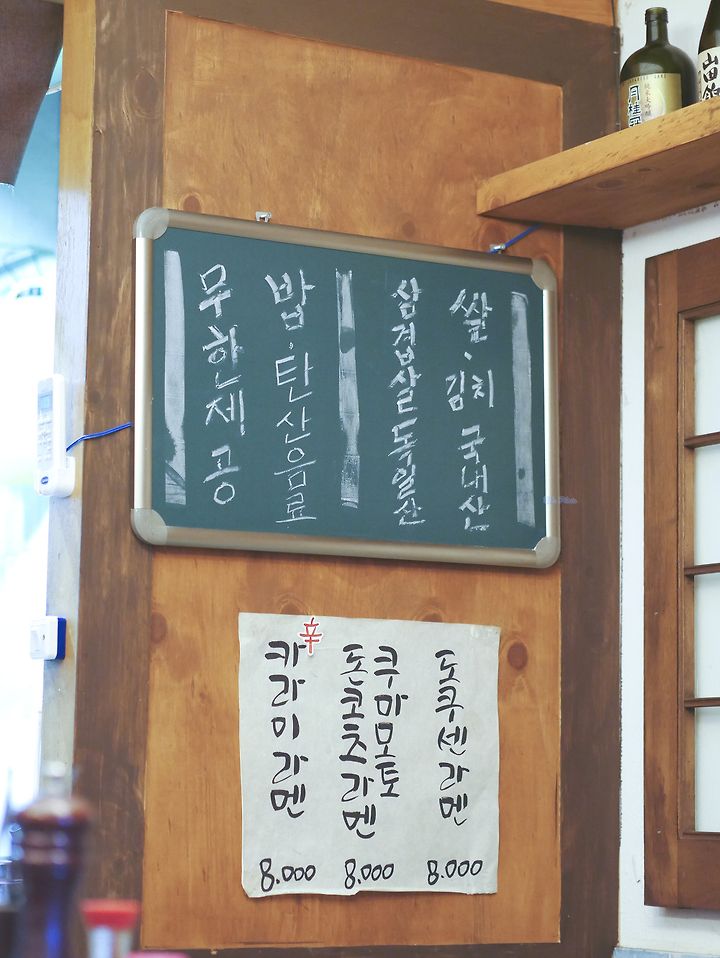 쌀、김치 국내산
삼겹살독일산
밥·탄산음료
무한제공
도쿠센라멘
8.000
쿠마모토
돈코츠라멘
8.000
辛
카라미라멘
8.000
月桂冠